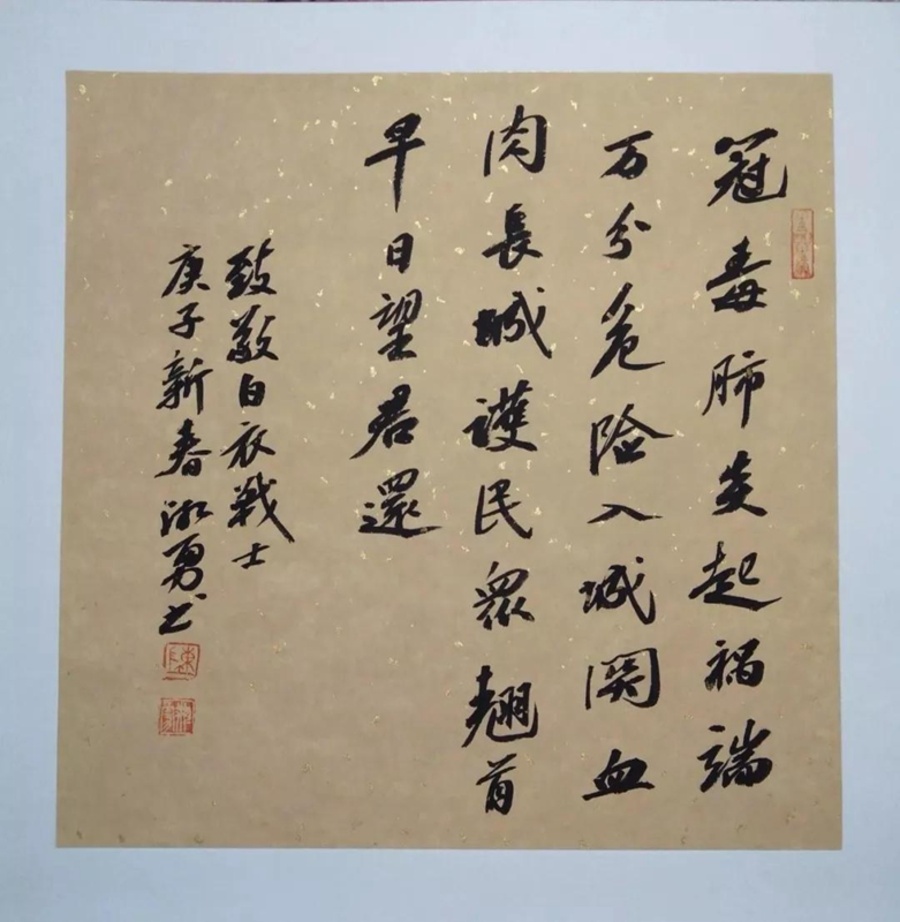 冠毒肺炎起祸端
万分危险入城関血
肉長城護民衆翘首
早日望君還
致敬白衣战士
庚子新春泳勇书